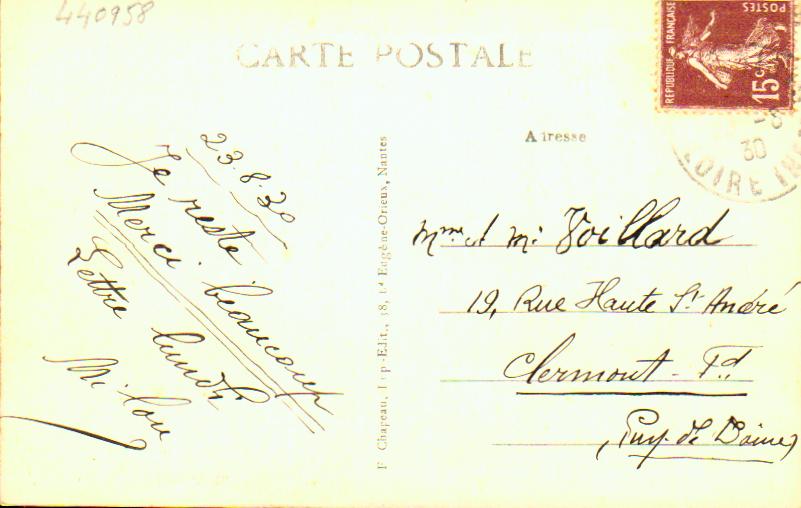 440958
CARTE POSTALE
REPUBLIQUE FRANÇAISE
POSTES
15c
30
LOIRE IN
Adresse
23.8.30
Je reste
Merci beaucoup
Lettre lundi
Milou
F Chapeau, Imp-Edit., 38, Bd Eugène-Orieux, Nantes
Mme et Mr Voillard
19, Rue Haute St André
Clermont-Fd
(Puy de Dôme)